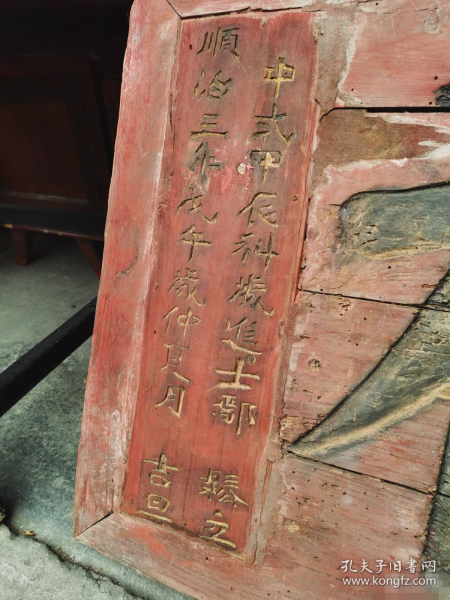 中式甲辰科進士
立
順治三年戊午歲仲夏月
吉旦
孔夫子旧书网
www.kongfz.com